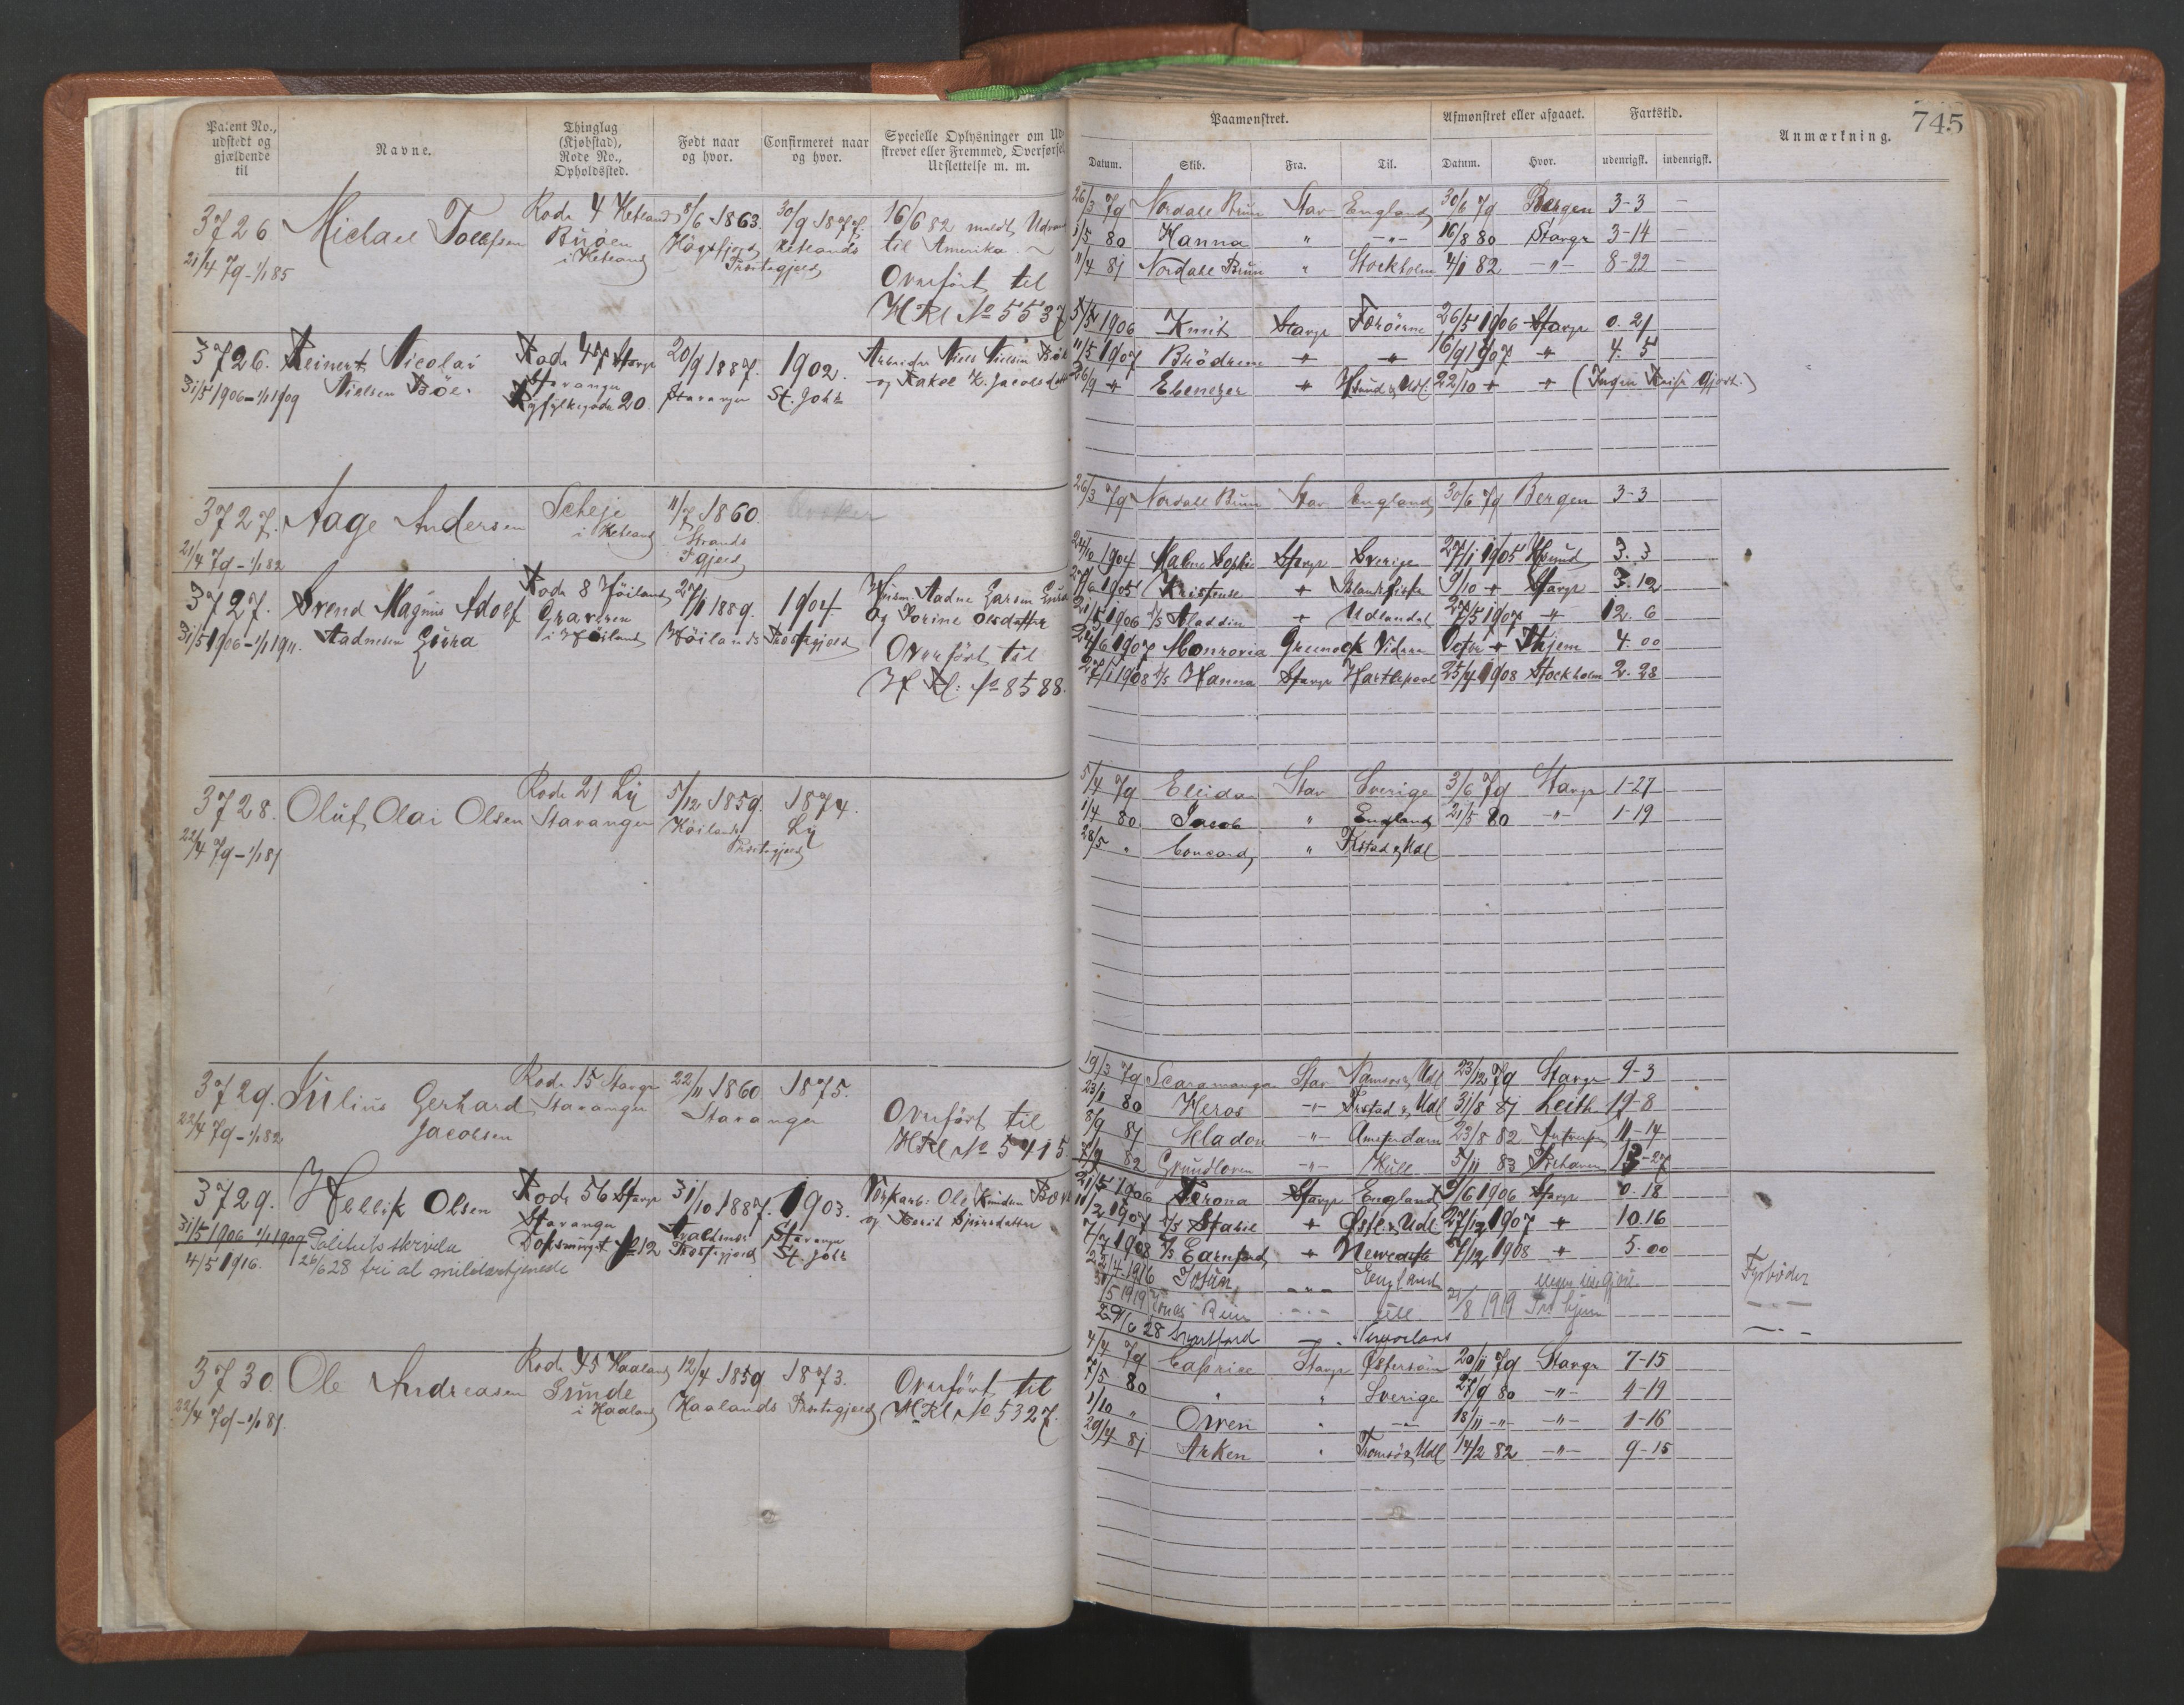 Patent No., udstedt og gjældende til
Navne.
Thinglag (Kjøbstad), Rode No., Opholdssted.
Født naar og hvor.
Confirmeret naar og hvor.
Specielle Oplysninger om Ud-
skrevet eller Fremmed, Overførsel
Udslettelse m. m.
3726.
Michael Tollefsen
Rode 4 Hetland
Buöen
i Hetland
8/6 1863.
Högsfjord
30/9 1877.
Hetlands
Præstegjeld
21/4 79 - 1/1 85
16/6 82 meldt Udvan
til Amerika
Overført til
HRl No 5537
3726.
Reinert Nicolai
Nielsen Böe.
31/5 1906 - 1/1 1909
Rode 47 Stavgr
Stavanger
Ryfylkegade 20.
20/9 1887.
Stavanger
1902.
St. Joh.
Arbeider Niels Nielsen Böe
og Rakel K. Jacobsdatter
3727.
Aage Andersen
21/4 79 - 1/1 82
Scheje
i Hetland
11/7 1860.
Strands
Pgjeld
3727.
Svend Magnus Adolf
Aadnesen Gürra
31/5 1906 - 1/1 1911.
Rode 8 Höiland
Gravaren
i Höiland
27/11 1889.
Höilands
1904
Præstegjeld
Husm. Aadne Larsen
og Torine Olsdatter
Overført til
H Rl: No 8588.
3728.
Oluf Olai Olsen
22/4 79 - 1/1 81
Rode 21 Ly
Stavanger
5/12 1859.
Höiland
Præstegjeld
1874.
Ly
3729.
Julius Gerhard
Jacobsen
22/4 79 - 1/1 82
Rode 15 Stavgr
Stavanger
22/11 1860.
Stavanger
1875.
Overført til
HRl No 5415.
3729.
Hellik Olsen
31/5 1906 1/1 1909
4/5 1916.
26/6 28 fri al militærtjeneste
Rode 56 Stavgr
Stavanger
No 12
31/10 1887.
Præstegjeld
1903.
Stavanger
St. Joh.
Ole Knudsen
og Berit
3730.
Ole Andreasen
22/4 79 - 1/1 81.
Rode 45 Haaland
Sunde
i Haaland
12/4 1859
Haalands
1873.
Præstegjeld
Overført til
HRl No 5327.
745
Paamønstret.
Afmønstret eller afgaaet.
Fartstid.
Anmærkning.
Datum.
Skib.
Fra.
Til.
Datum.
Hvor.
udenrigsk.
indenrigsk.
26/3 79 Nordahl Brun Stav England 30/6 79 Bergen 3-3 -
1/5 80 Hanna " -"- 16/8 80 Stavgr 3-14 -
11/4 81 Nordahl Brun " Stockholm 4/1 82 -"- 8-22 -
5/5 1906 Knut Stavgr Færöerne 26/5 1906 Stavgr 0.21
11/5 1907 Brödrene + + 16/9 1907 + 4.5
26/9 + Ebenezer + Hsund & Udl. 22/10 + + (Ingen Reise gjort.)
26/3 79 Nordahl Brun Stav England 30/6 79 Bergen 3-3
24/10 1904 Malene Sophie Stavgr Sverige 27/1 1905 Hsund 3.3
27/6 1905 Kristense + Islandsfiske 9/10 + Stavgr 3.12
21/5 1906 S/S Aladdin + Udlandet 27/5 1907 " 12.6
24/6 1907 Monrovia Greenock Vidare Octbr + Thjem 4.00
27/1 1908 S/S Hanna Stavgr Hartlepool 25/4 1908 Stockholm 2.28
5/4 79 Ellida Stav Sverige 3/6 79 Stavgr 1-27
1/4 80 Jacob " England 21/5 80 -"- 1-19
28/5 " Concord " Frstad & Udl
19/3 79 Scaramanga Stav Namsos & Udl 23/12 79 Stavgr 9-3
23/1 80 Heros -"- Frstad & Udl 31/8 81 Leith 19-8
8/9 81 Seladon -"- Amsterdam 23/8 82 Antwerpen 11-14
7/9 82 Grundloven -"- Hull 5/11 83 13-27
21/5 1906 Verona Stavgr England 9/6 1906 Stavgr 0.18
11/2 1907 S/S Stabil + Osló & Udl 27/12 1907 + 10.16
7/7 1908 S/S Earnford + Newcastle 7/12 1908 + 5.00
22/4 1916 Jösün -"- England
Fyrböder
/5 1919 Jonas Rein -"- Hull 21/8 1919
27/6 28
4/4 79 Caprice Stavgr Østersöen 20/11 79 Stavgr 7-15
7/5 80 " " Sverige 27/9 80 -"- 4-19
1/10 " Orren " -"- 18/11 -"- -"- 1-16
29/4 81 Arken " Tromsö & Udl 14/2 82 -"- 9-15